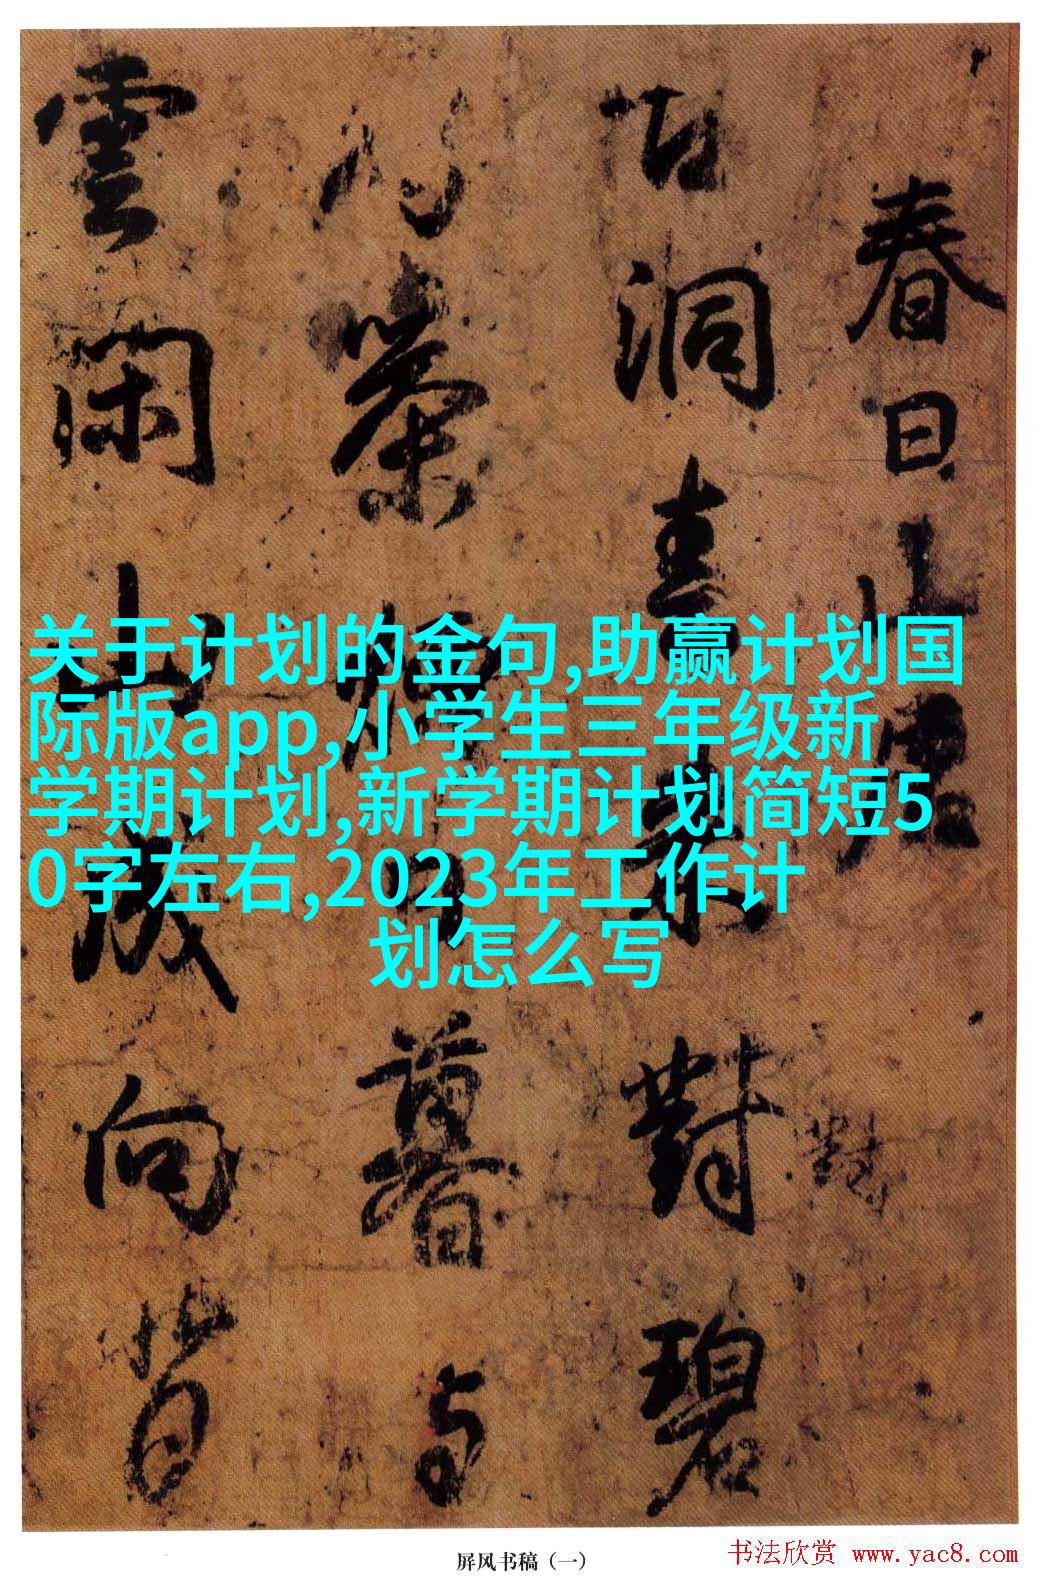 春日山
古洞春來對碧
茶烟日暮与
雲闲山成向背
关于计划的金句,助赢计划国
际版app,小学生三年级新
学期计划,新学期计划简短5
0字左右,2023年工作计
划怎么写
屏风书稿（一）
书法欣赏 www.yac8.com